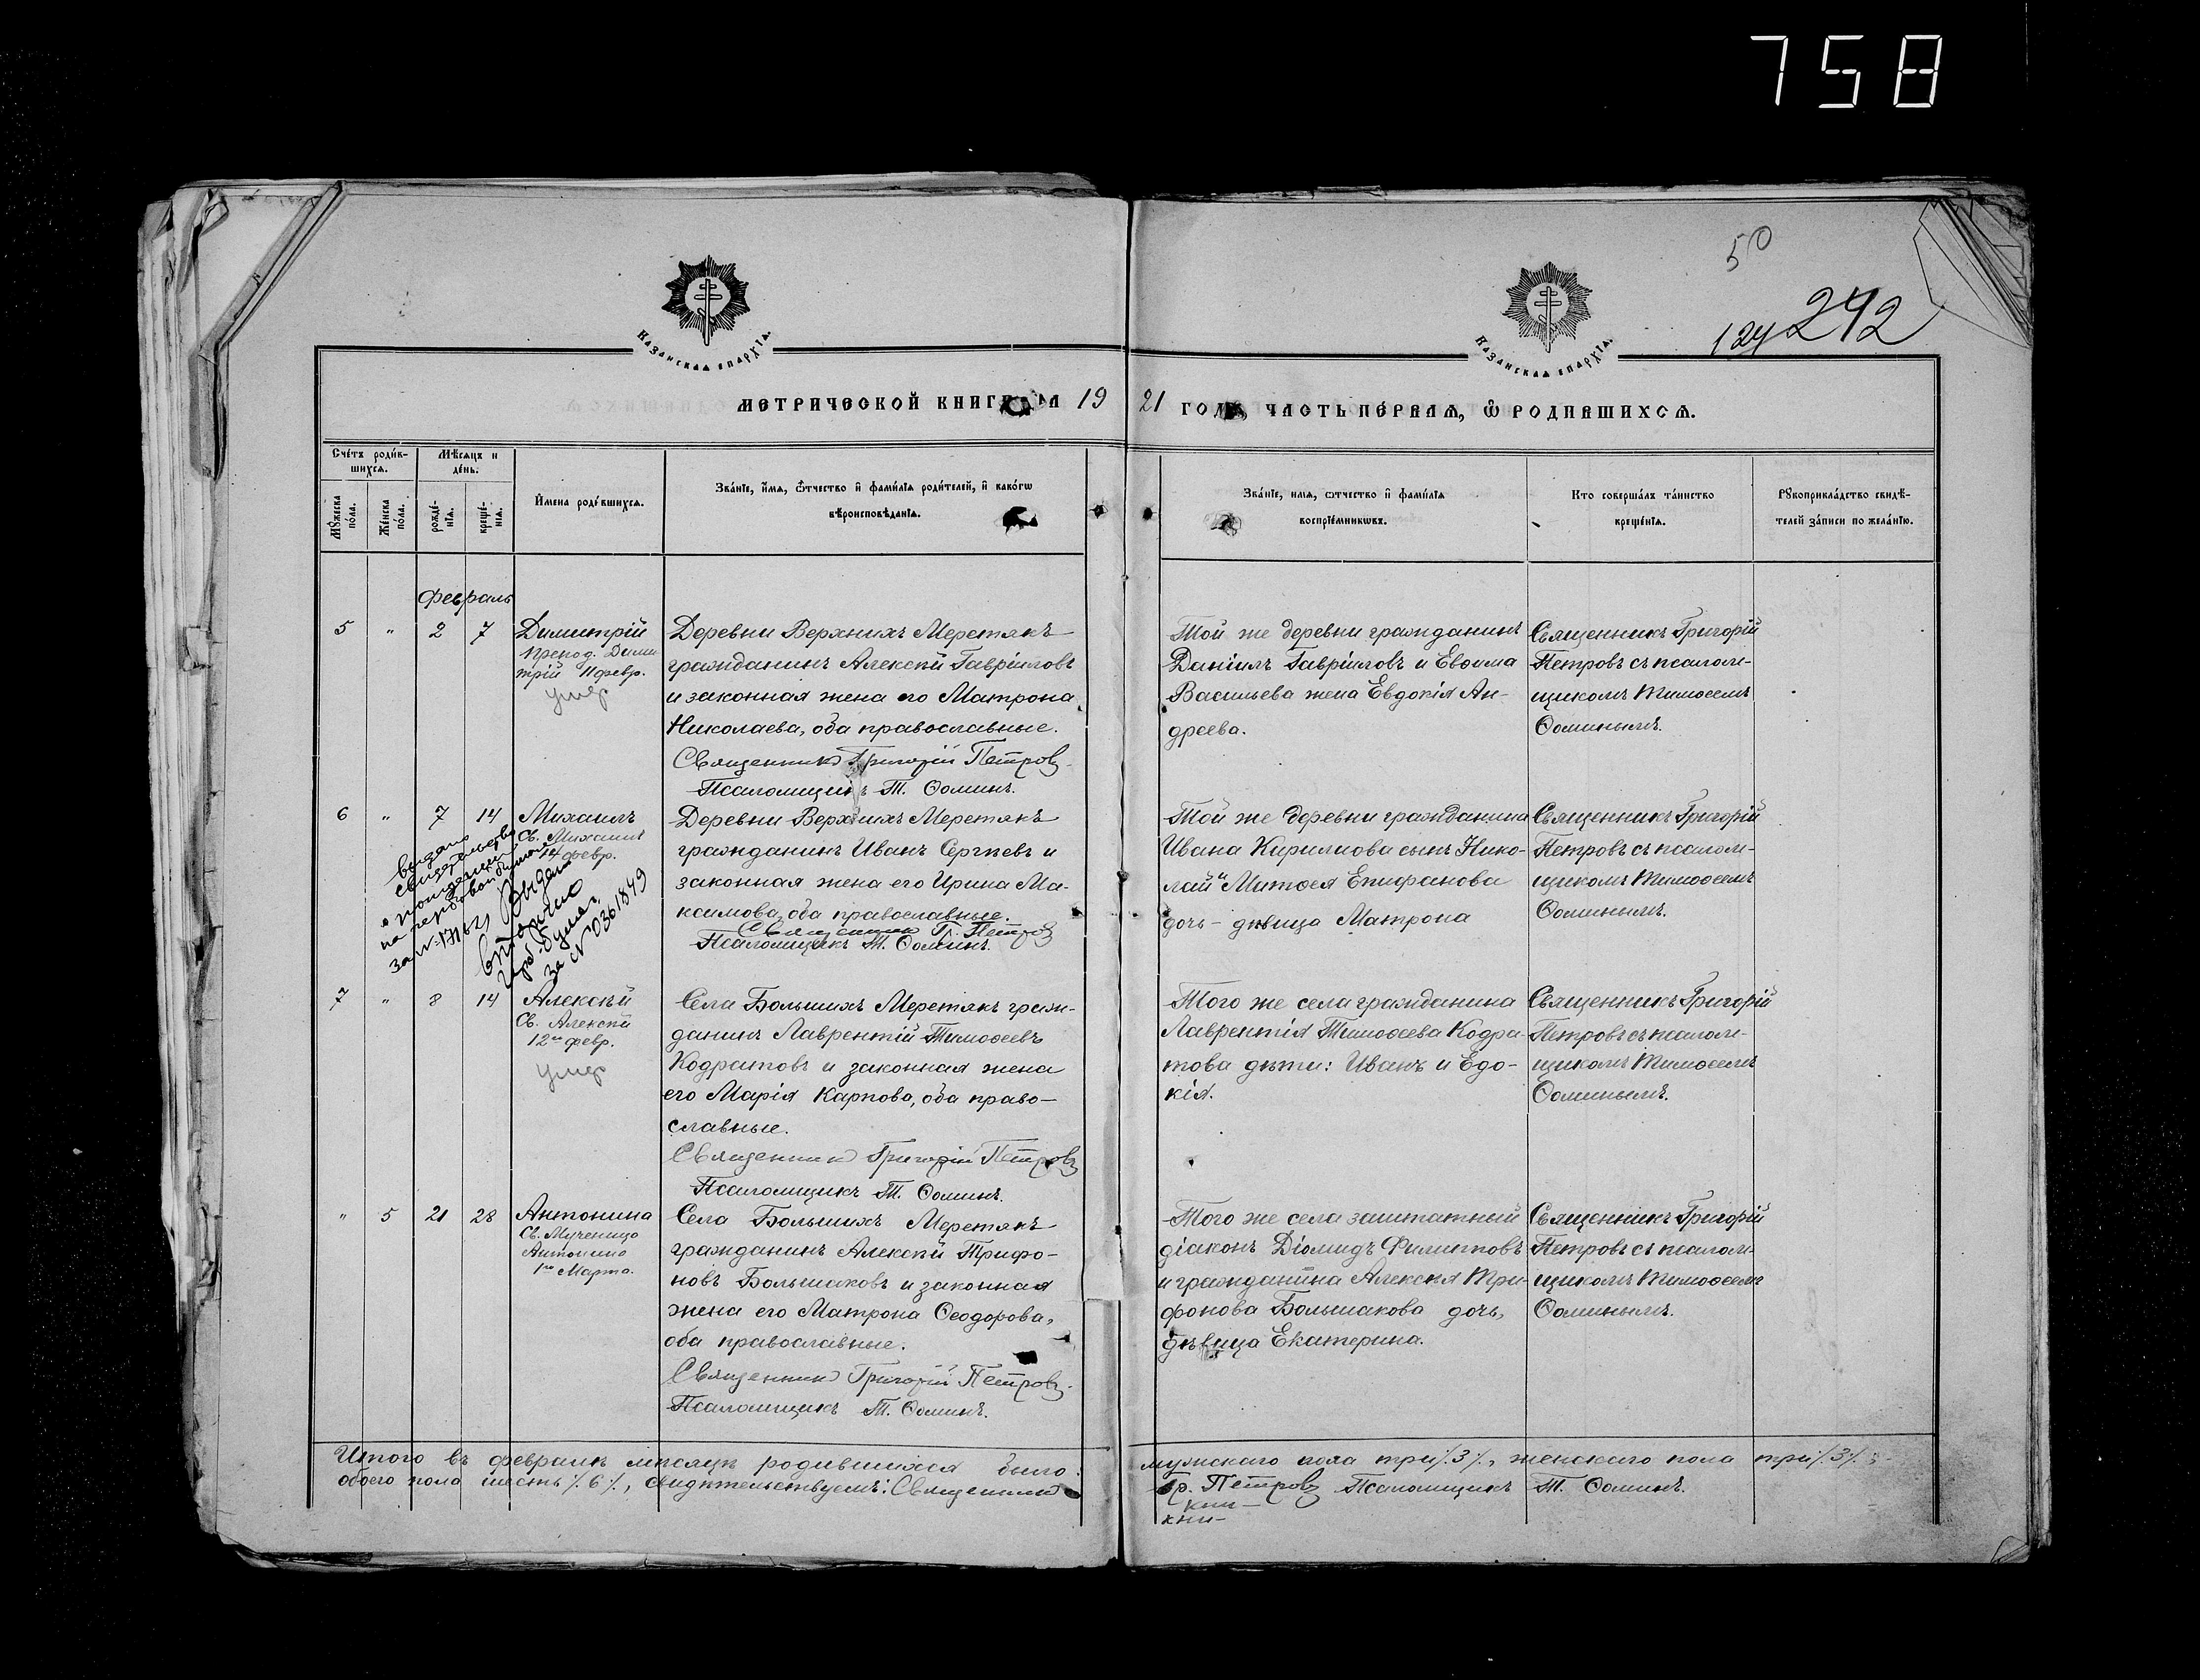 758
50
124 242
Казанская епархїа.
Казанская епархїа.
МЕТРИЧЕСКОЙ КНИГИ НА 19
21 ГОДЪ, ЧАСТЬ ПЕРВАЯ, Ѡ РОДИВШИХСЯ.
Счетъ родив-
шихся.
Мѣсяцъ и
день.
Мужеска
пола.
Женска
пола.
рожде-
нїя.
креще-
нїя.
Имена родившихся.
Званїе, имя, ѿчество и фамилїя родителей, и какогѡ
вѣроисповѣданїя.
Званїе, имя, ѿчество и фамилїя
воспрїемникѡвъ.
Кто совершалъ таинство
крещенїя.
Рукоприкладство свидѣ-
телей записи по желанїю.
Февраль
5 " 2 7 Димитрій
препод. Дими
трій 11 февр.
умер
Деревни Верхнихъ Меретякъ
гражданинъ Алексѣй Гавріиловъ
и законная жена его Матрона
Николаева, оба православные.
Священникъ Григорій Петровъ
Псаломщикъ Т. Ѳоминъ.
Той же деревни гражданинъ
Даніилъ Гавріиловъ и Евѳима
Васильева жена Евдокія Ан-
дреева.
Священникъ Григорій
Петровъ съ псалом-
щикомъ Тимоѳеемъ
Ѳоминымъ.
6 " 7 14 Михаилъ
Св. Михаилъ
14 февр.
выдано
свидетельство
за № 17162
Выдано
вторично
герб. бумаг.
за № 0361849
Деревни Верхнихъ Меретякъ
гражданинъ Иванъ Сергѣевъ и
законная жена его Ирина Ма-
ксимова, оба православные.
Священникъ Г. Петровъ
Псаломщикъ Т. Ѳоминъ.
Той же деревни гражданина
Ивана Кирилова сынъ Нико-
лай и Митѳея Епифанова
дочь - дѣвица Матрона
Священникъ Григорій
Петровъ съ псалом-
щикомъ Тимоѳеемъ
Ѳоминымъ.
7 " 8 14 Алексѣй
Св. Алексѣй
12го февр.
умер
Села Большихъ Меретякъ граж-
данинъ Лаврентій Тимоѳеевъ
Кодратовъ и законная жена
его Марія Карпова, оба право-
славные.
Священникъ Григорій Петровъ
Псаломщикъ Т. Ѳоминъ.
Того же села гражданина
Лаврентія Тимоѳеева Кодра-
това дѣти: Иванъ и Едо-
кія.
Священникъ Григорій
Петровъ съ псалом-
щикомъ Тимоѳеемъ
Ѳоминымъ.
" 5 21 28 Антонина
Св. Мученица
Антонина
1го Марта.
Села Большихъ Меретякъ
гражданинъ Алексѣй Трифо-
новъ Большаковъ и законная
жена его Матрона Ѳеодорова,
оба православные.
Священникъ Григорій Петровъ.
Псаломщикъ Т. Ѳоминъ.
Того же села заштатный
діаконъ Діомидъ Филипповъ
и гражданина Алексѣя Три-
фонова Большакова дочь,
дѣвица Екатерина.
Священникъ Григорій
Петровъ съ псалом-
щикомъ Тимоѳеемъ
Ѳоминымъ.
Итого въ февралѣ мѣсяцѣ родившихся было: мужскаго пола три ⁒3⁒, женскаго пола три ⁒3⁒;
обоего пола шесть ⁒6⁒, свидѣтельствуемъ: Священникъ Гр. Петровъ Псаломщикъ Т. Ѳоминъ.
кни-
кни-